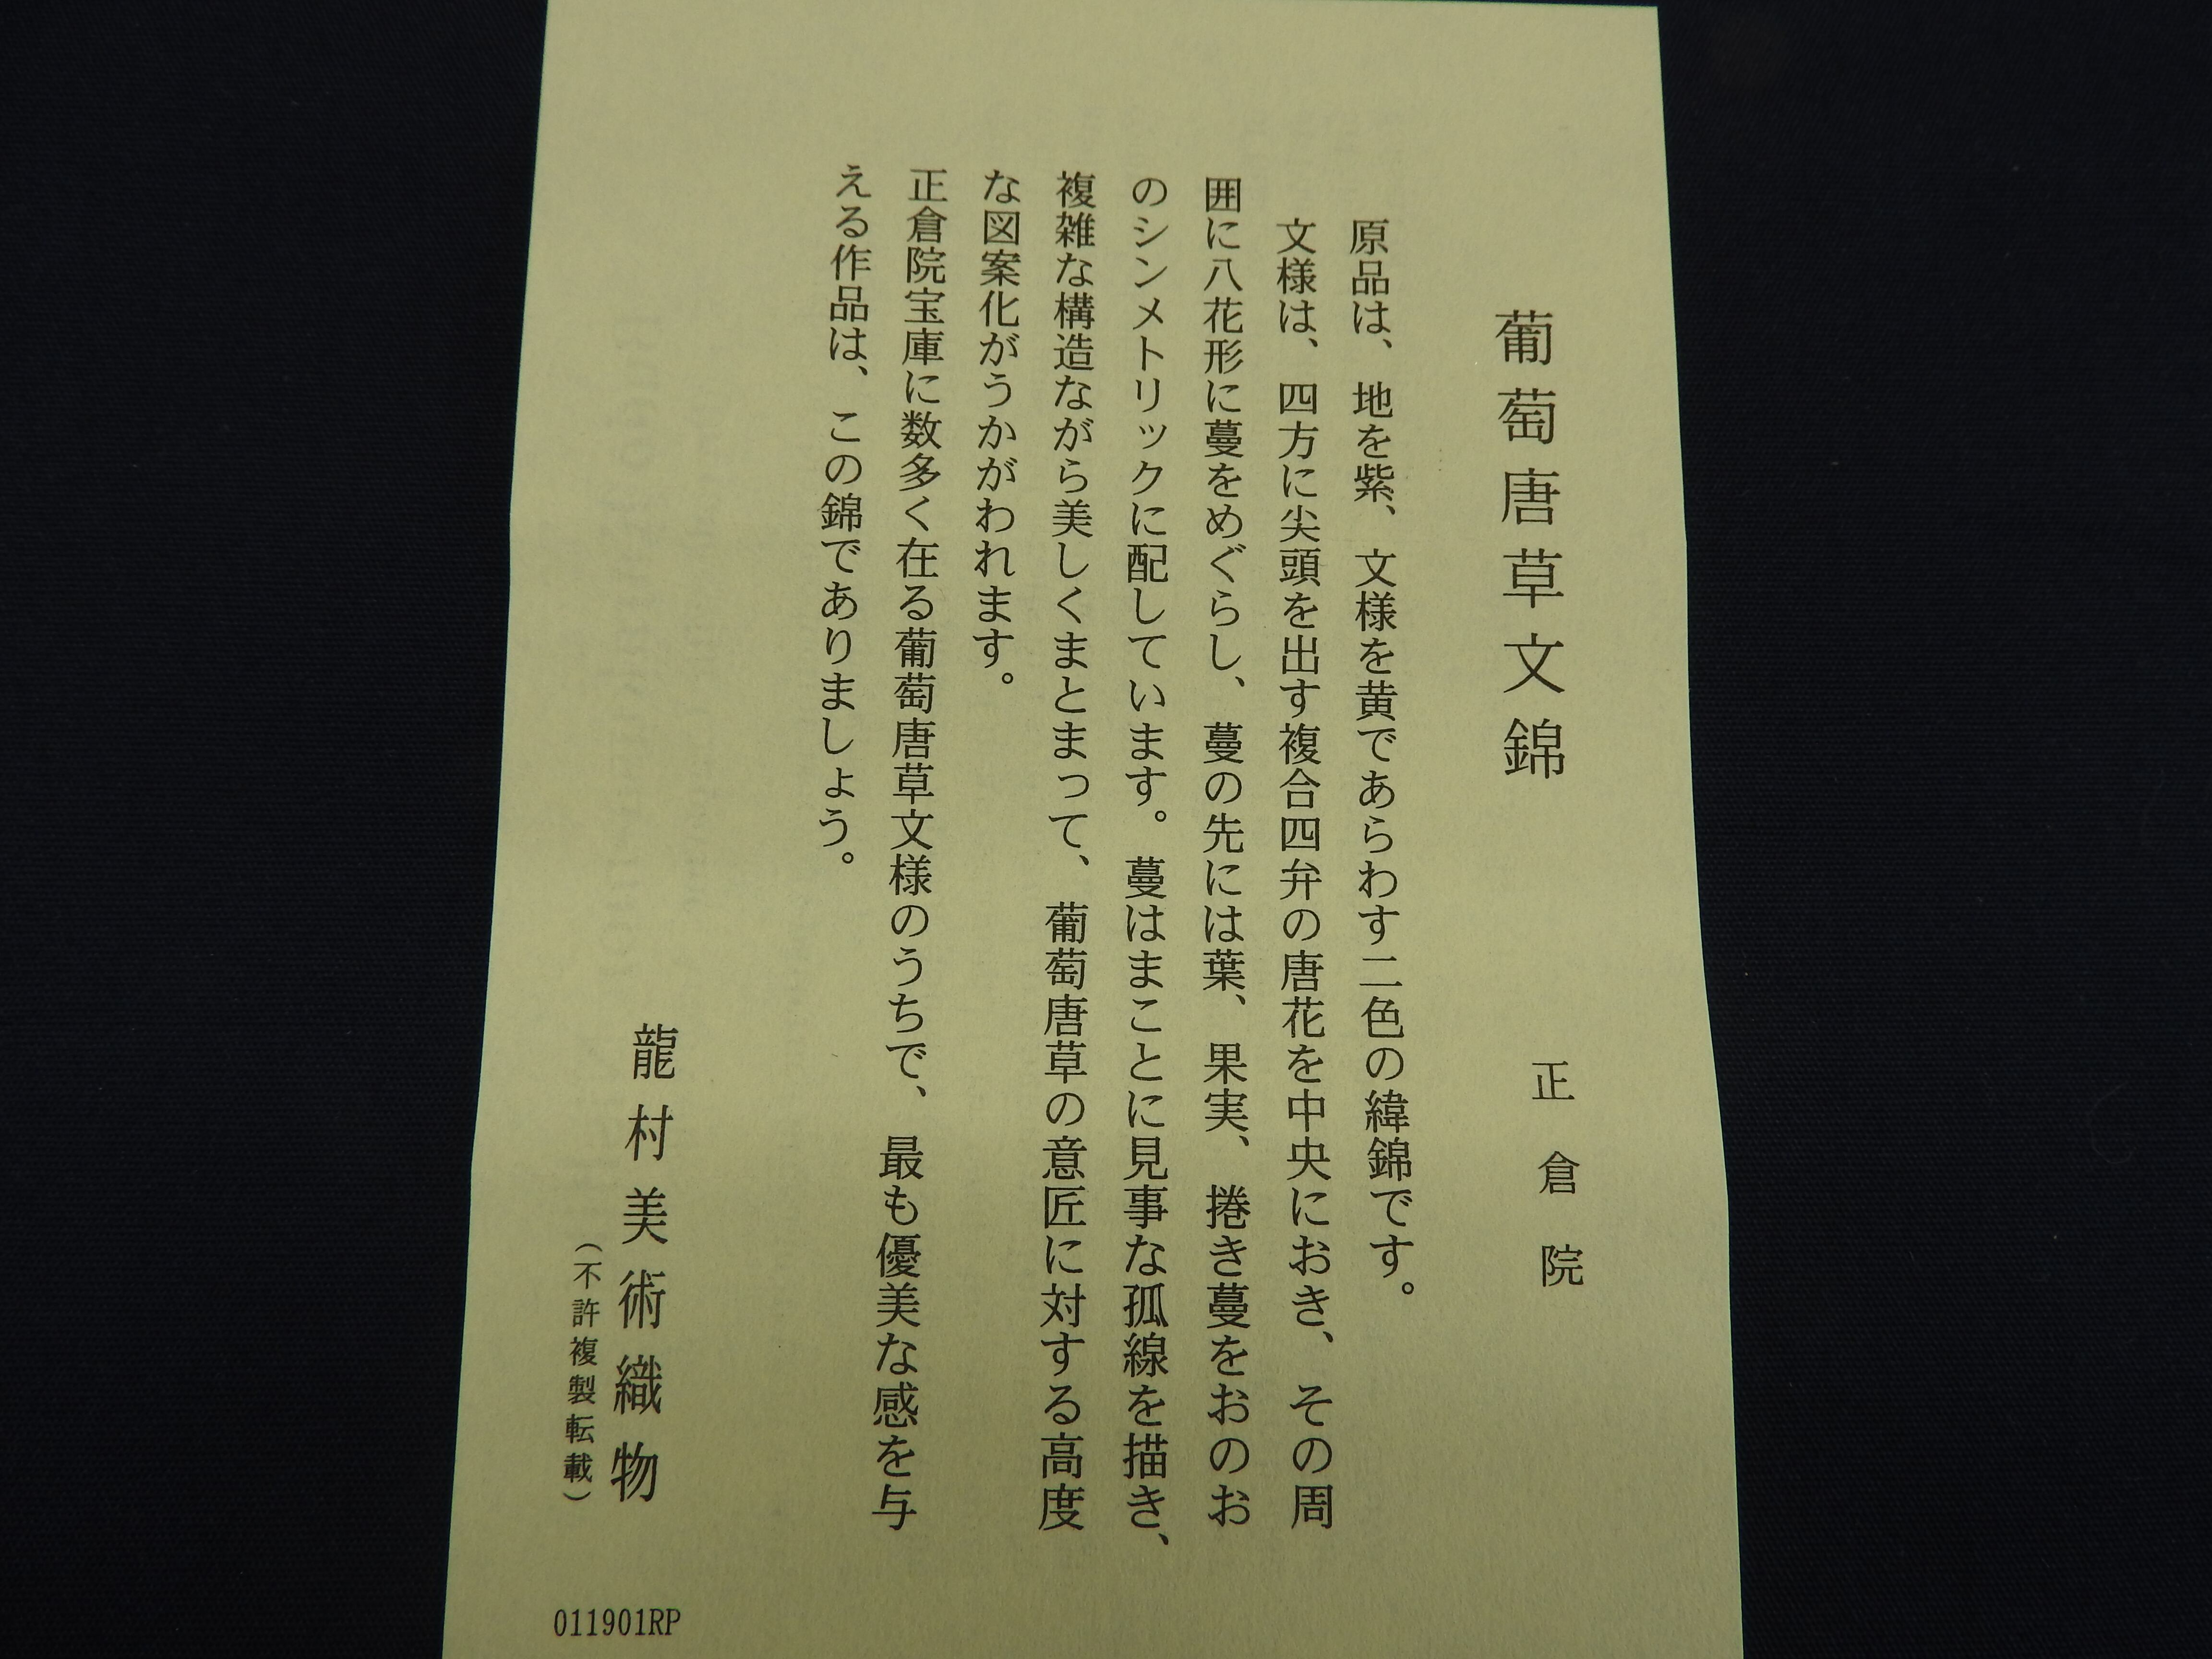 葡萄唐草文錦
正倉院
原品は、地を紫、文様を黄であらわす二色の緯錦です。
文様は、四方に尖頭を出す複合四弁の唐花を中央におき、その周
囲に八花形に蔓をめぐらし、蔓の先には葉、果実、捲き蔓をおのお
のシンメトリックに配しています。蔓はまことに見事な孤線を描き、
複雑な構造ながら美しくまとまって、葡萄唐草の意匠に対する高度
な図案化がうかがわれます。
正倉院宝庫に数多く在る葡萄唐草文様のうちで、最も優美な感を与
える作品は、この錦でありましょう。
龍村美術織物
（不許複製転載）
011901RP